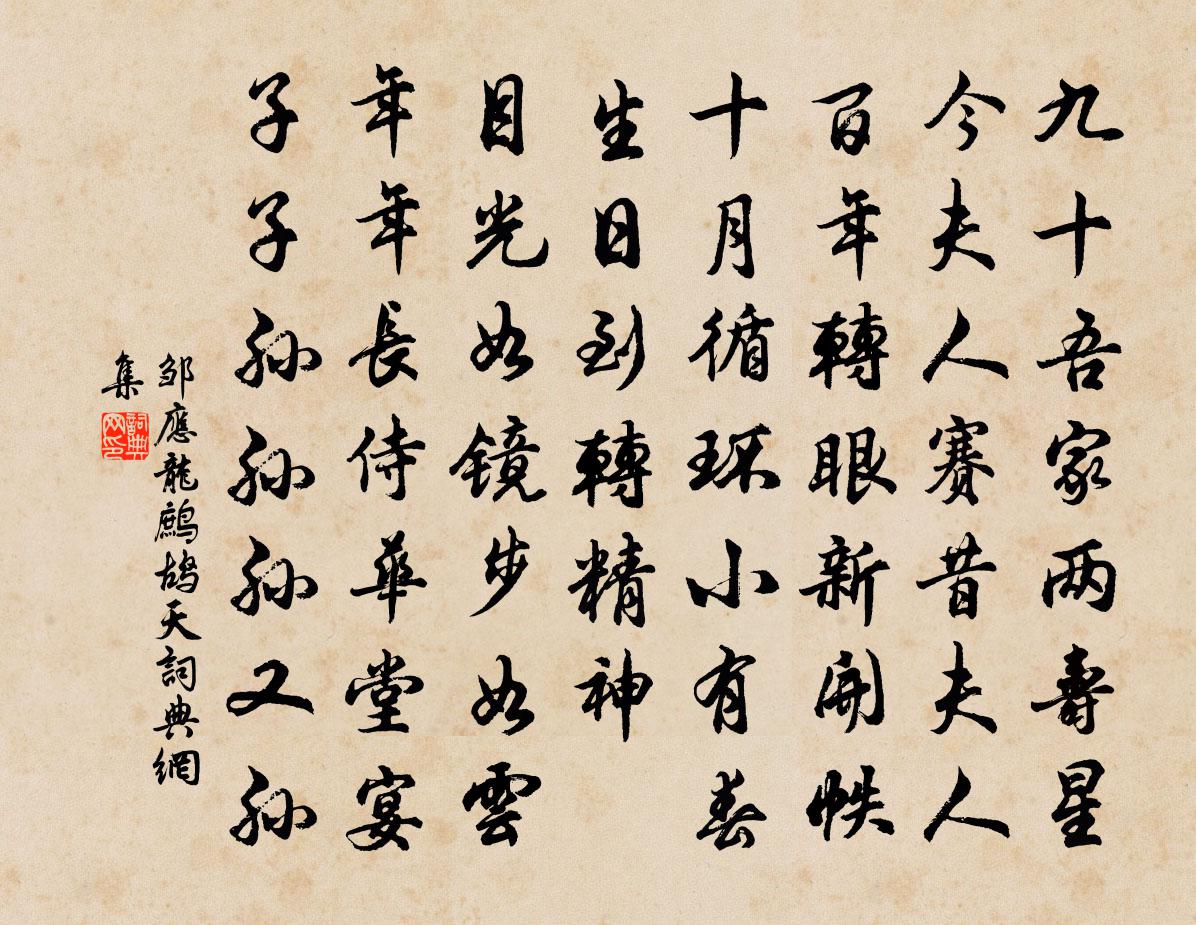 九十吾家两壽星
今夫人賽昔夫人
百年轉眼新開帙
十月循环小有春
生日到轉精神
目光如镜步如雲
年年長侍華堂宴
子子孙孙孙又孙
邹應龍鷓鴣天詞典網
集
詞典网印